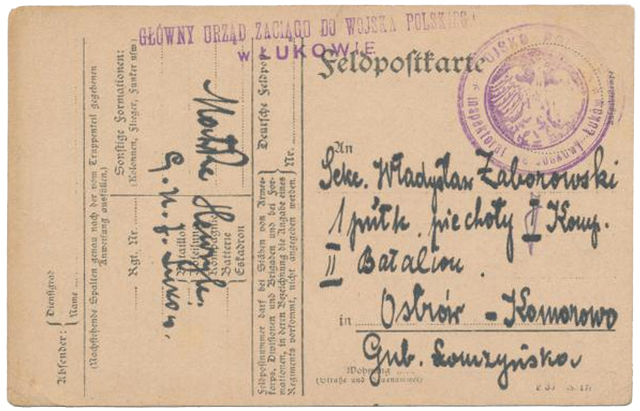 GŁÓWNY URZĄD ZACIĄGU DO WOJSKA POLSKIEGO
W ŁUKOWIE
Feldpostkarte
An
Sekc. Władysław Zaborowski
1 pułk. piechoty I Komp.
II Batalion.
in Ostrów - Komorowo
Gub. Łomżyńska
Wohnung
(Straße und Hausnummer)
Deutsche Feldpost
Nr.
Feldpostnummer darf bei Stäben von Armee-
korps, Divisionen und Brigaden und bei For-
mationen, in deren Bezeichnung die Angabe eines
Regiments vorkommt, nicht angegeben werden.
Sonstige Formationen:
(Kolonnen, Flieger, Funker usw.)
Rgt. Nr.
Bataillon
Abteilung
Kompagnie
Batterie
Eskadron
(Nachstehende Spalten genau nach der vom Truppenteil gegebenen
Anweisung ausfüllen.)
Absender:
Dienstgrad
Name